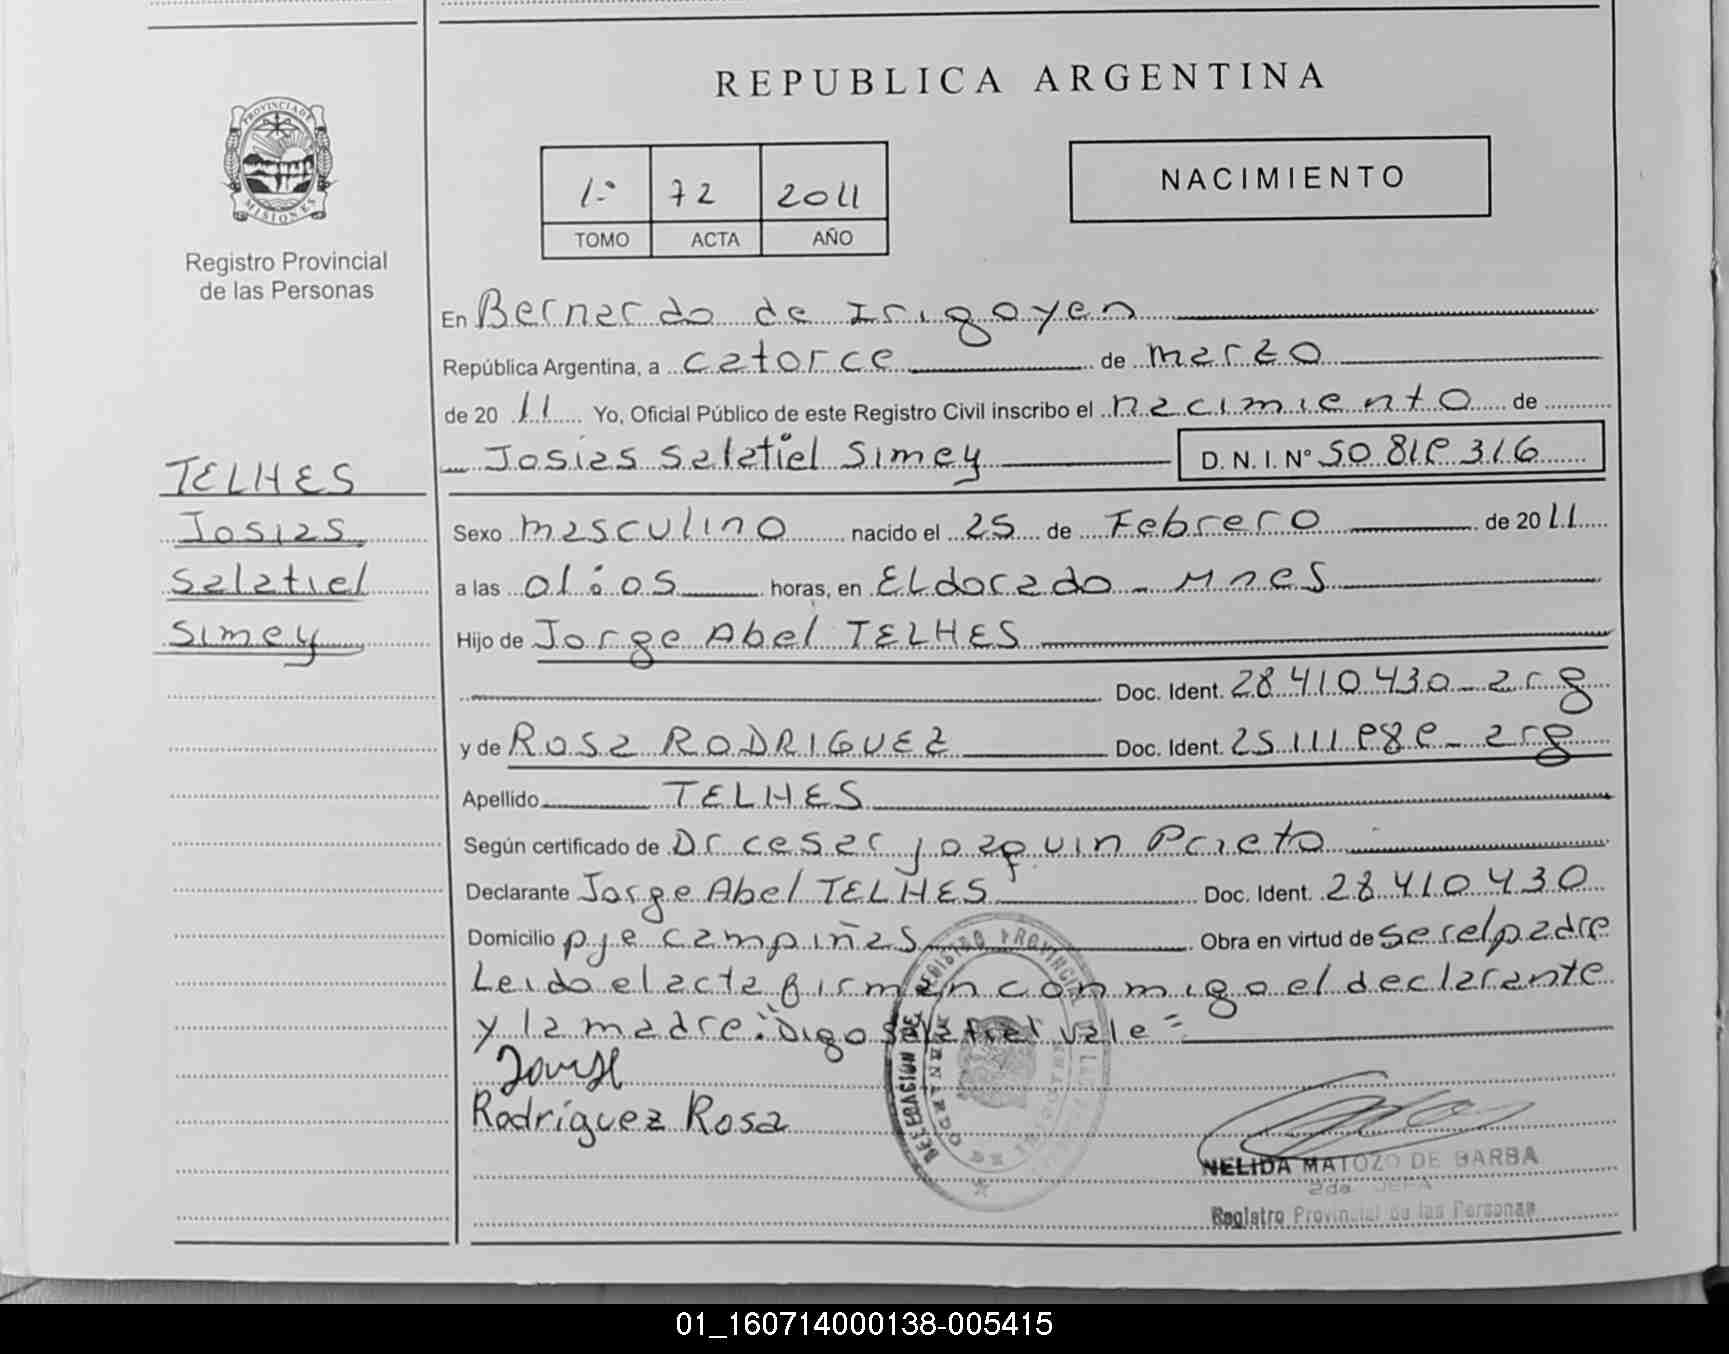 REPUBLICA ARGENTINA
PROVINCIA DE
MISIONES
Registro Provincial
de las Personas
1º 72 2011
TOMO ACTA AÑO
NACIMIENTO
En Bernardo de Irigoyen
República Argentina, a catorce de marzo
de 2011 Yo, Oficial Público de este Registro Civil inscribo el nacimiento de
Josias Salatiel Simey D.N.I. Nº 50.819.316
TELHES
Josias
Salatiel
Simey
Sexo masculino nacido el 25 de Febrero de 2011
a las 01:05 horas, en ELdorado - Mnes
Hijo de Jorge Abel TELHES
Doc. Ident. 28.410.430 - arg
y de Rosa RODRIGUEZ Doc. Ident. 25.111.989 - arg
Apellido TELHES
Según certificado de Dr cesar joaquin Prieto
Declarante Jorge Abel TELHES Doc. Ident. 28.410.430
Domicilio pje campiñas Obra en virtud de ser el padre
Leido el acta firman conmigo el declarante
y la madre: "Digo Salatiel vale =
Rodríguez Rosa
NELIDA MATOZO DE BARBA
2da JEFA
Registro Provincial de las Personas
01_160714000138-005415